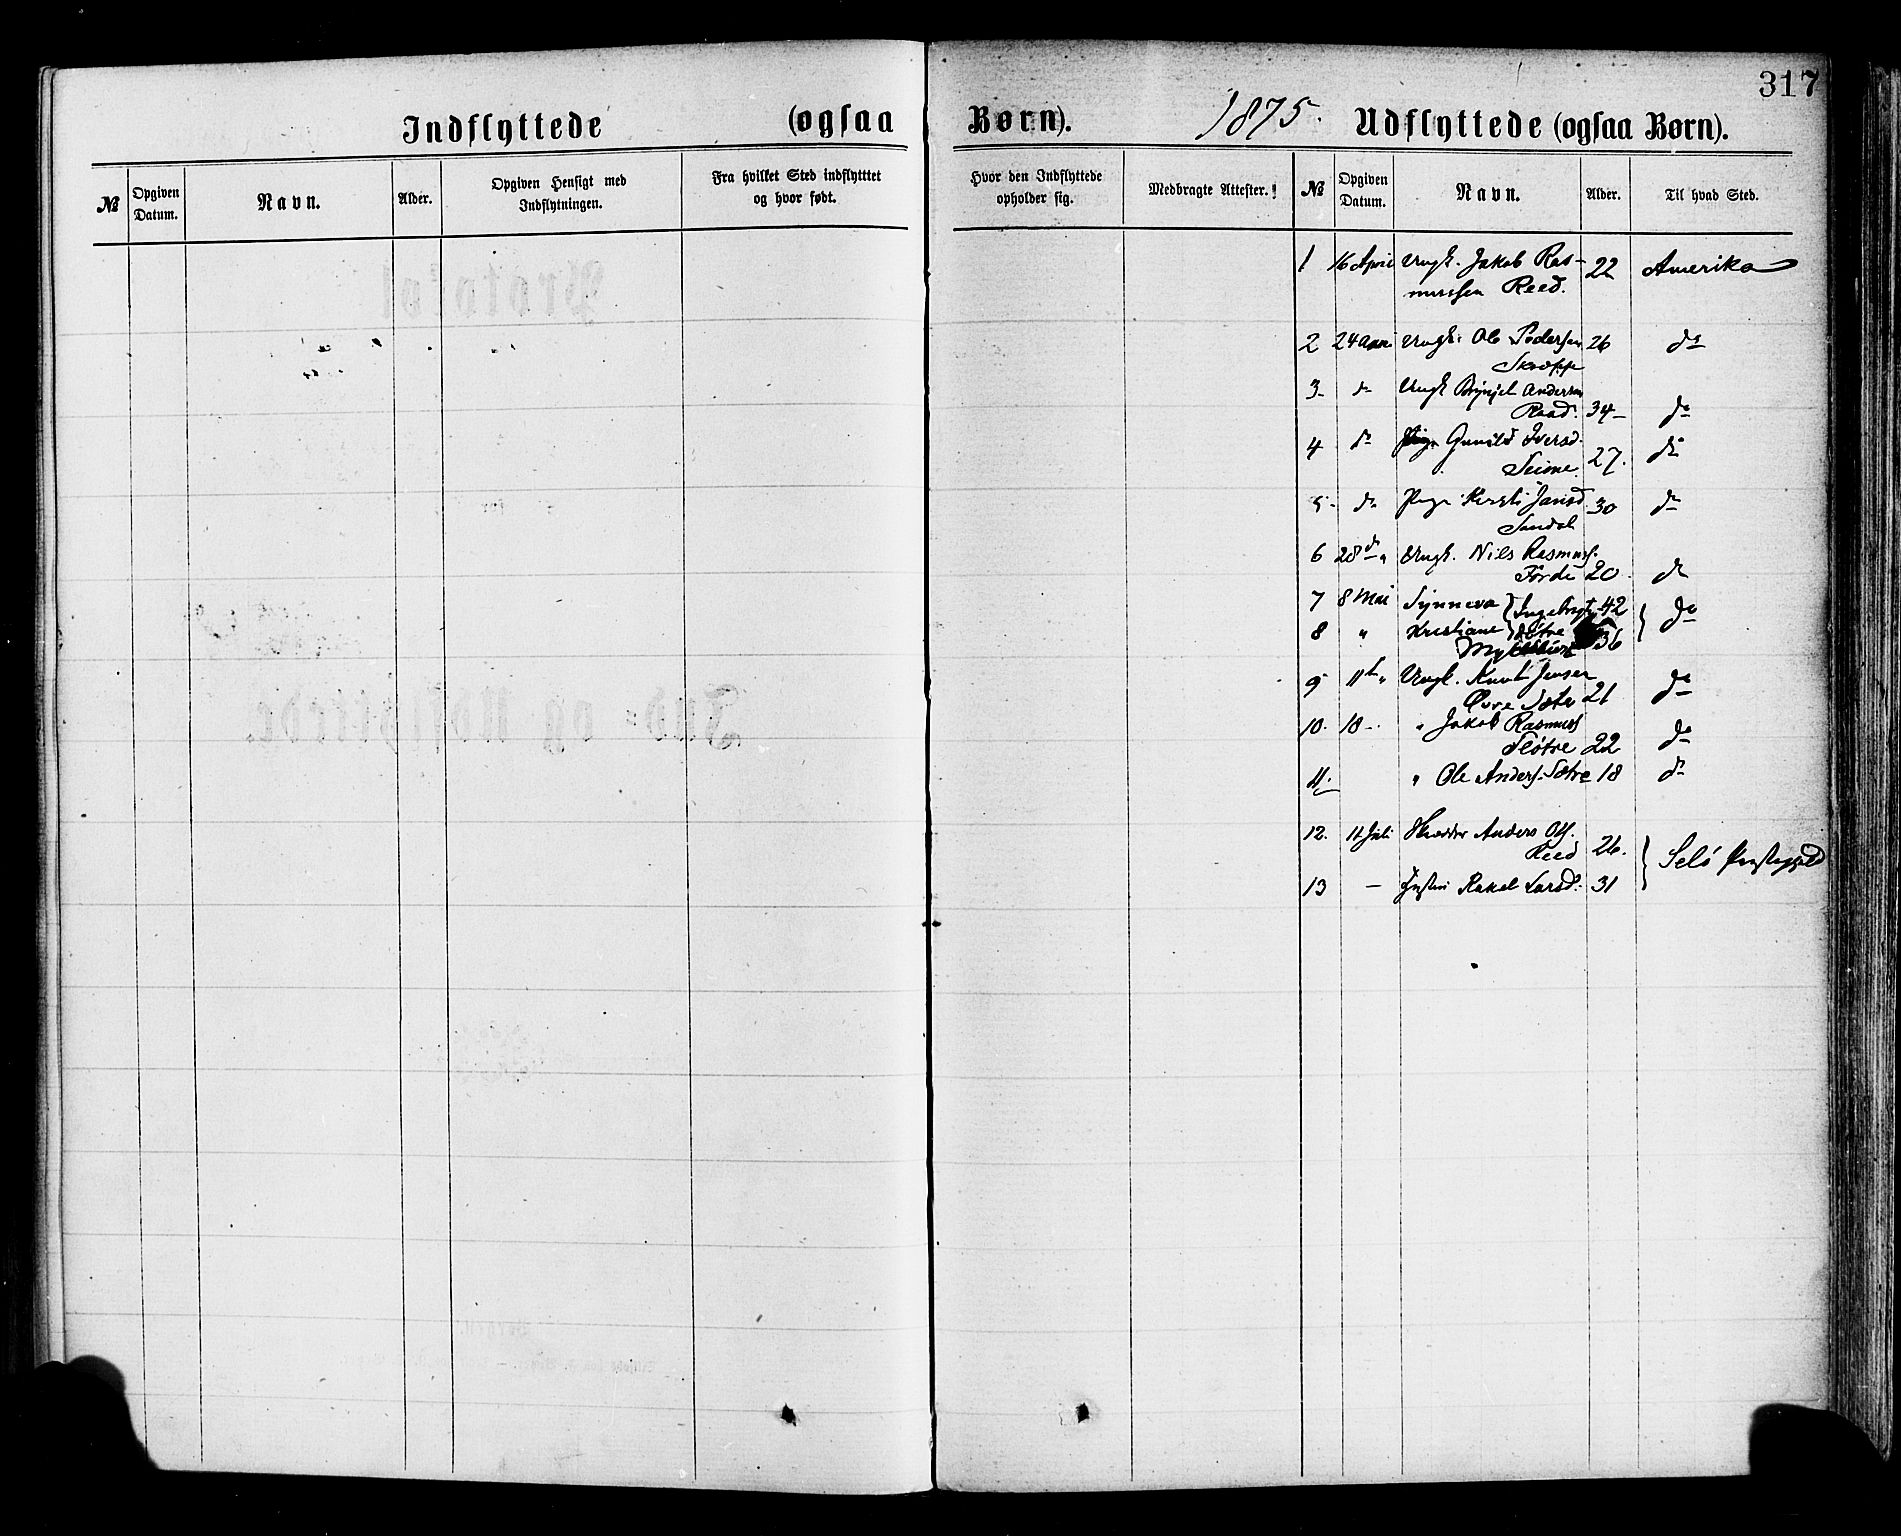 317
Indflyttede (ogsaa Børn). 1875. Udflyttede (ogsaa Børn).
№ Opgiven Datum. Navn. Alder. Opgiven Hensigt med Indflytningen. Fra hvilket Sted indflytttet og hvor født. Hvor den Indflyttede opholder sig. Medbragte Attester. № Opgiven Datum. Navn. Alder. Til hvad Sted.
1 16 April Ungk. Jakob Ras- 22 Amerika
mussen Reed.
2 24 Ungk. Ole Pedersen 26 do
3 do Ungk Brynjel Andersen
Raad. 34 do
4 do Pige Gunild Iversd.
Seime 27. do
5 do Pige Kersti Jansd. 30 do
Sandal
6 28 do Ungk. Nils Rasmuss.
Førde 20. do
7 8 Mai Synneva } Ingebrigts 42 } do
8 " Kristiane } 36
Myklebust
9 11t " Ungk. Knut Jensen
Øvre Sæter 21 do
10. 18 " Jakob Rasmuss
22 do
11. " Ole Anders. Sætre 18 do
12. 11 Juli Anders Ols.
Reed 26. } Selø Præstegjeld
13 — Rakel Larsd. 31